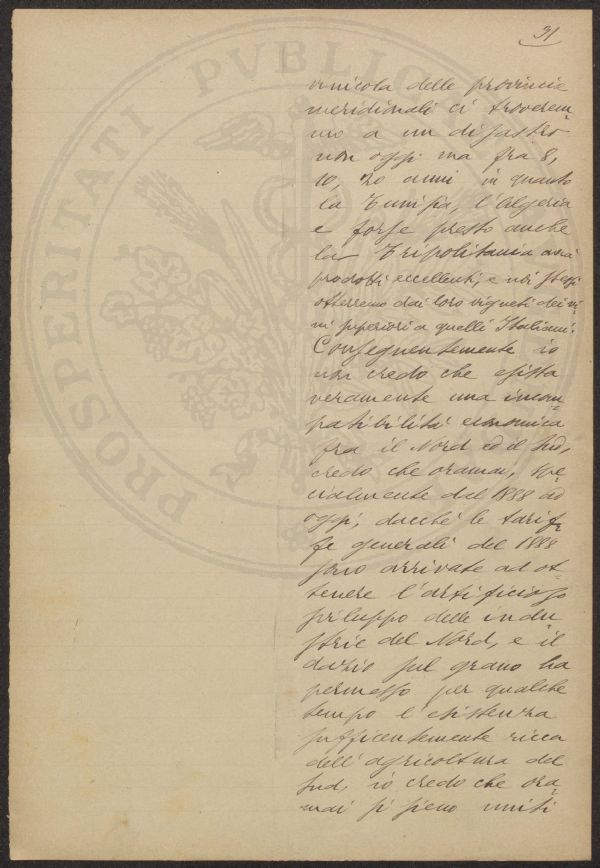 31
PROSPERITATI PVBLIC
vinicola delle provincie
meridionali ci troverem-
mo a un disastro
non oggi ma fra 8,
10, 20 anni in quanto
la Tunisia, l'Algeria
e forse presto anche
la Tripolitania avrà
prodotti eccellenti, e noi stessi
otterremo dai loro vigneti dei vi-
ni superiori a quelli Italiani.
Conseguentemente io
non credo che esista
veramente una incom-
patibilità economica
fra il Nord ed il Sud,
credo che oramai, spe-
cialmente dal 1888 ad
oggi, dacché le tarif-
fe generali del 1888
sono arrivate ad ot-
tenere l'artificioso
sviluppo delle indu-
strie del Nord, e il
dazio sul grano ha
permesso per qualche
tempo l'esistenza
sufficentemente ricca
dell'agricoltura del
Sud, io credo che ora-
mai si sieno uniti